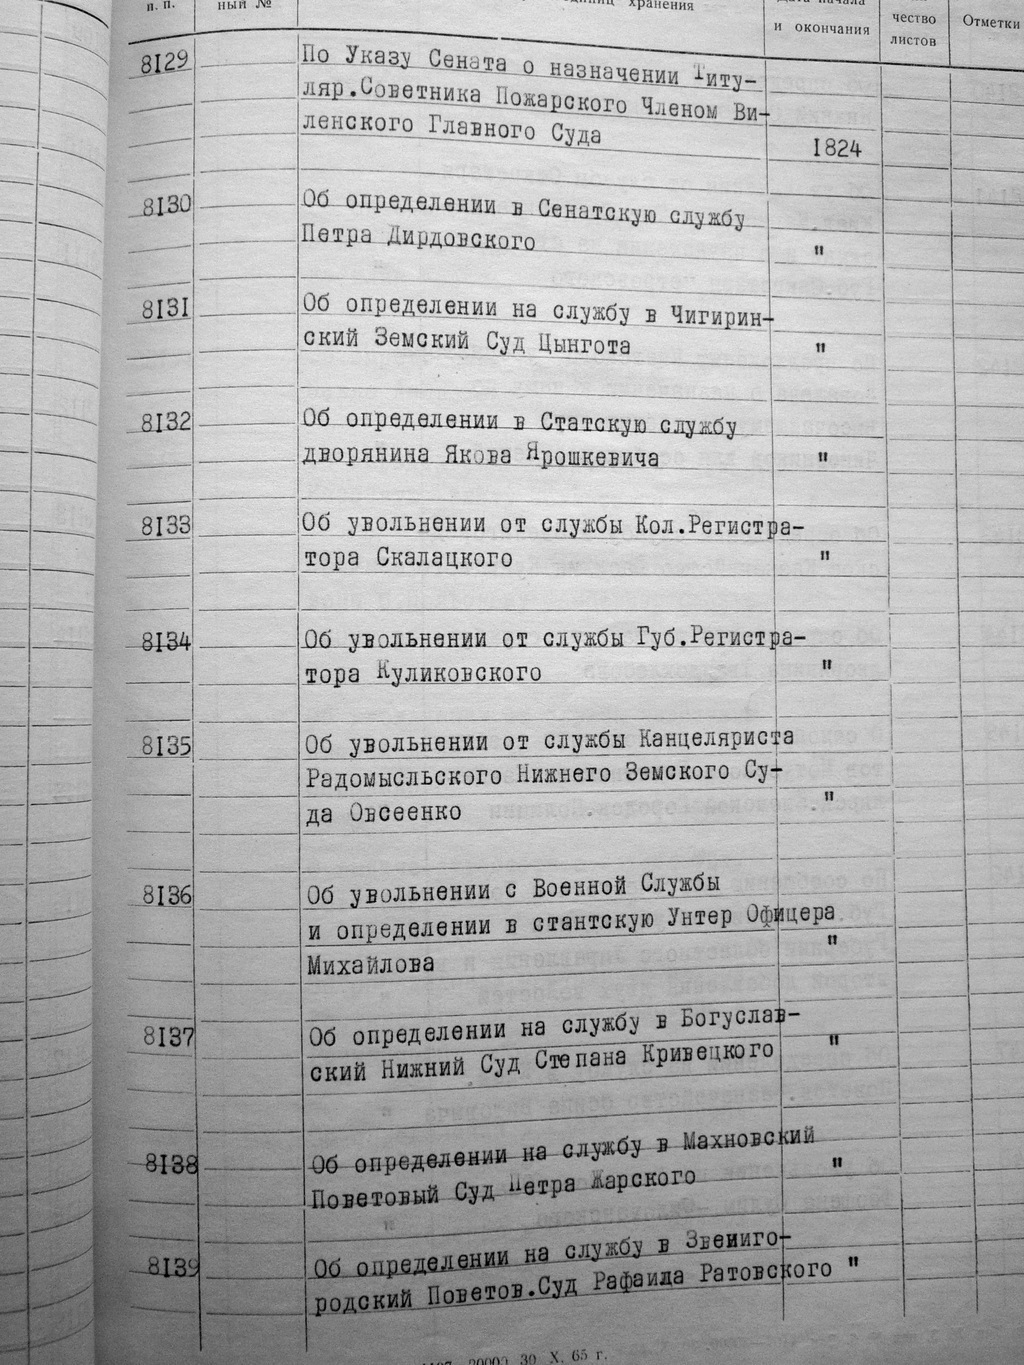 п. п.
ный №
единиц хранения
и окончания
чество
листов
Отметки
8129 По Указу Сената о назначении Титу-
ляр.Советника Пожарского Членом Ви-
ленского Главного Суда
1824
8130 Об определении в Сенатскую службу
Петра Дирдовского "
8131 Об определении на службу в Чигирин-
ский Земский Суд Цынгота "
8132 Об определении в Статскую службу
дворянина Якова Ярошкевича "
8133 Об увольнении от службы Кол.Регистра-
тора Скалацкого "
8134 Об увольнении от службы Губ.Регистра-
тора Куликовского "
8135 Об увольнении от службы Канцеляриста
Радомысльского Нижнего Земского Су-
да Овсеенко "
8136 Об увольнении с Военной Службы
и определении в стантскую Унтер Офицера
Михайлова "
8137 Об определении на службу в Богуслав-
ский Нижний Суд Степана Кривецкого "
8138 Об определении на службу в Махновский
Поветовый Суд Петра Жарского "
8139 Об определении на службу в Звениго-
родский Поветов.Суд Рафаила Ратовского "
30 X. 65 г.